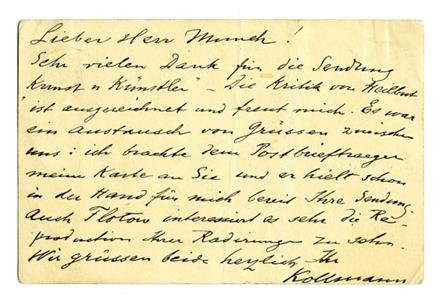 Lieber Herr Munch!
Sehr vielen Dank für die Sendung
Kunst u Künstler" – Die Kritik von Heilbut
ist ausgezeichnet und freut mich. Es war
ein austausch von Grüssen zwischen
uns: ich brachte dem Postbrieftraeger
meine Karte an Sie und er hielt schon
in der Hand für mich bereit Ihre Sendung
Auch Flotow interessirt es sehr die Re-
production Ihrer Radirungen zu sehn.
Wir grüssen beide herzlich Ihr
Kollmann